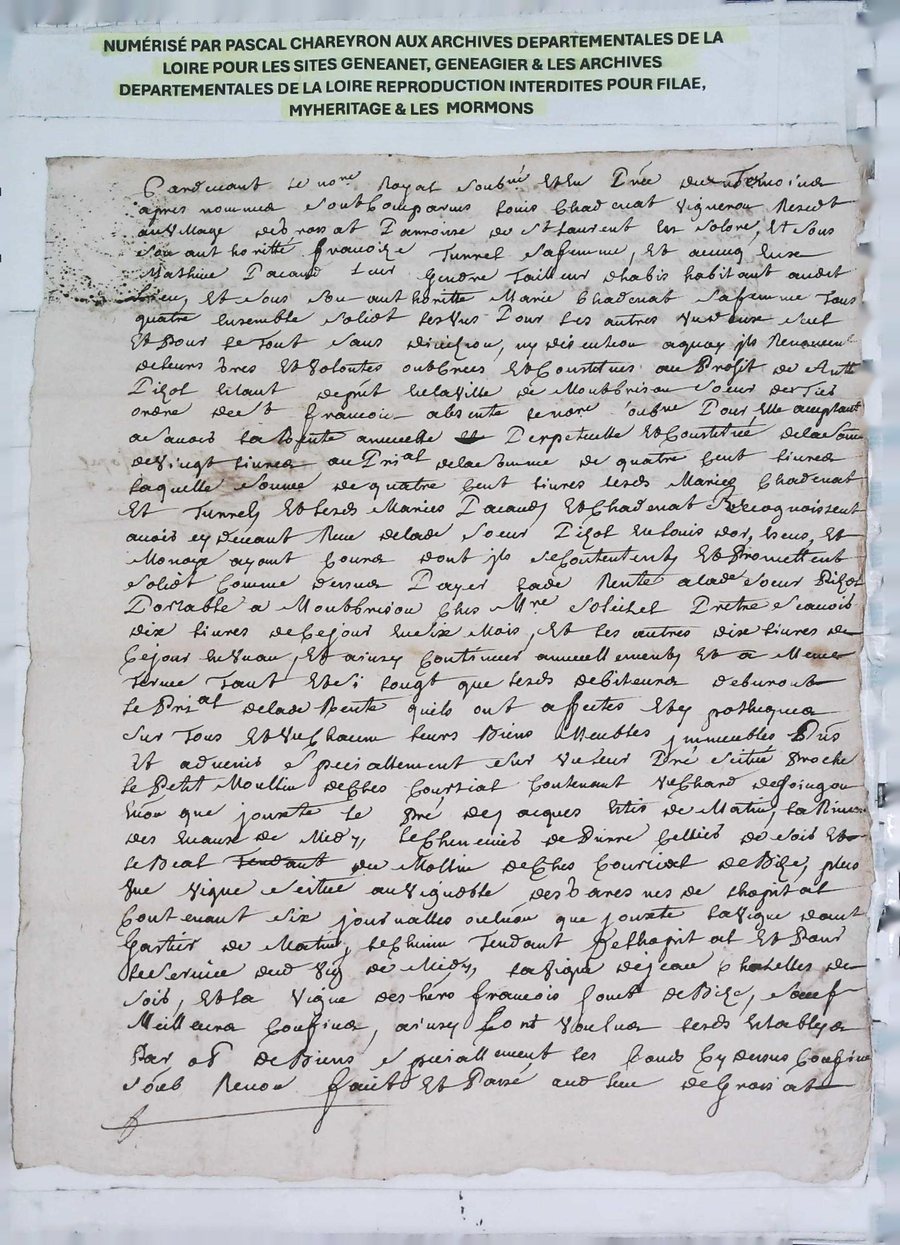 NUMÉRISÉ PAR PASCAL CHAREYRON AUX ARCHIVES DEPARTEMENTALES DE LA
LOIRE POUR LES SITES GENEANET, GENEAGIER & LES ARCHIVES
DEPARTEMENTALES DE LA LOIRE REPRODUCTION INTERDITES POUR FILAE,
MYHERITAGE & LES MORMONS
Pardevant le no.re Royal soub.né Et En Prée des tesmoins
apres nommes sont Comparus Louis Chadenat Vigneron Resedt
au Village de Grossat Parroisse de St Laurent En Solore, Et sous
son authoritté francoize Turrel sa femme, Et avecq Eux
Mathieu Pacaud Leur Gendre Tailleur dhabis habitant audit
Lieu, Et sous son authoritte Marie Chadenat sa femme Tous
quatre Ensemble solidt les Uns Pour Les autres Un deux seul
Et Pour Le Tout sans division, ny discution a quoy jls Renoncent
de leurs Gres Et Volontes ont Crees Et Constitues au Profit de
Pizot Ville de Montbrison soeur du Tiers
ordre de St francois absente Le nore soubne Pour Elle acceptant
a scavoir La Rente annuelle Et Perpetuelle Et Constitué de la Some
de Vingt Livres au Prial de la somme de quatre Cent Livres
Laquelle somme de quatre Cent Livres Lesds Maries Chadenat
Et Turrel Et Lesds Maries Pacaud Et Chadenat Recognoissent
avoir cy devant Receu de lade soeur Pizot En Louis dor, Escus, Et
Monoye ayant Cours dont jls se Contentent Et Promettent
solidt Comme dessus Payer lade Rente a lade soeur Pizot
Portable a Montbrison Ches Mre Pretre scavoir
dix Livres de Ce jour En six Mois, Et Les autres dix Livres de
Ce jour En Un an, Et ainsy Continuer annuellement Et a Meme
Terme Tant Et si Longt que Lesds debiteurs debvront
Le Prial de lade Rente quils ont afectes Et ypotheques
sur Tous Et Un Chacun Leurs Biens Meubles jmmeubles Pris
Et advenir specialement sur Un Leur Pré scitue Proche
Le Petit Moullin de Ches Courtial Contenant Un Chard de foin
que jouxte Le Pré de jacques de Matin, La Riviere
des Eaux de Midy, Le Chemin de Pierre de soir Et
Le Beal Tendant du Mollin de Ches Courtial de Bize, plus
Une Vigne scitue au Vignoble de Lhopital
Contenant six journalles ou Environ que jouxte La Vigne
Gartier de Matin, Le Chemin Tendant de Lhopital Et Pour
Le service dud Vig de Midy, La Vigne de jean Chazelles de
soir, Et La Vigne des hers francois de Bize, sauf
Meilleurs Confins, ainsy Lont Voulus Lesds Establys
Par obon de Biens specialement Les fonds Cy dessus Confines
soub Renon faict Et Passé aud Lieu de Grossat